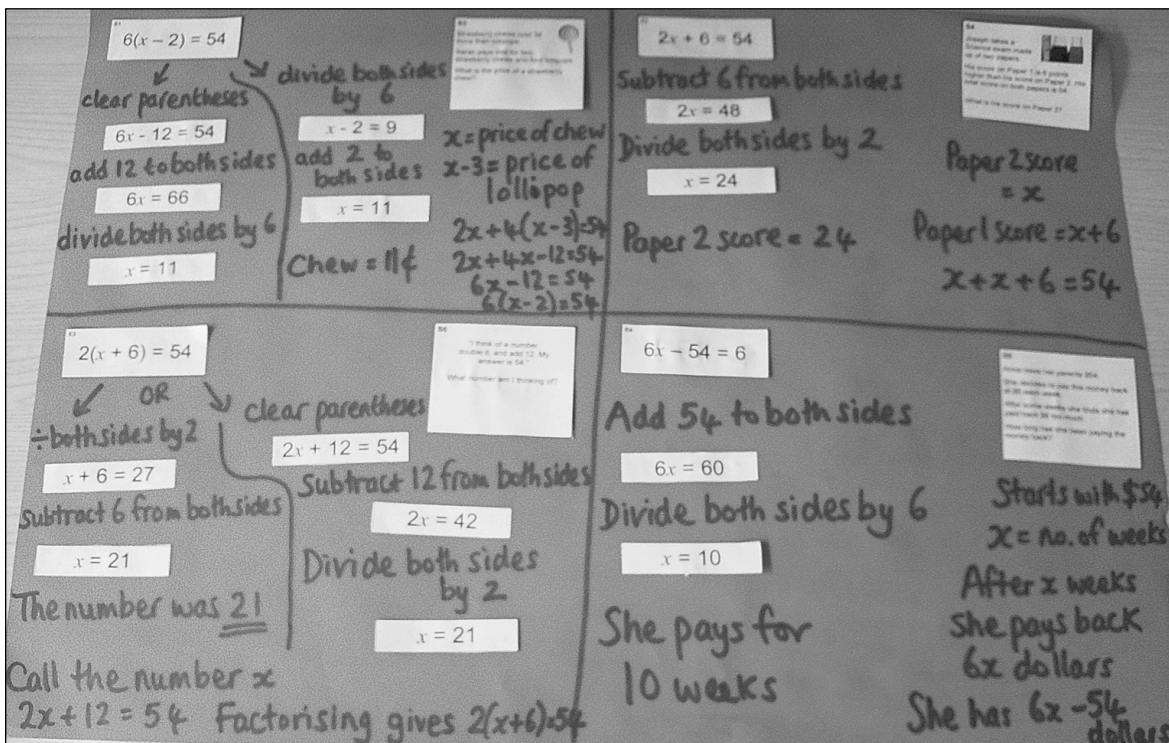 6(x − 2) = 54
clear parentheses
6x - 12 = 54
add 12 to both sides
6x = 66
divide both sides by 6
x = 11
divide both sides
by 6
x - 2 = 9
add 2 to
both sides
x = 11
Chew = 11¢
What is the price of a strawberry
chew?
x = price of chew
x-3 = price of
lollipop
2x+4(x-3)=54
2x+4x-12=54
6x-12=54
6(x-2)=54
2x + 6 = 54
Subtract 6 from both sides
2x = 48
Divide both sides by 2
x = 24
Paper 2 score = 24
Joseph takes a
Science exam made
up of two papers.
His score on Paper 1 is 6 points
higher than his score on Paper 2. His
total score on both papers is 54.
What is his score on Paper 2?
Paper 2 score
= x
Paper 1 score = x+6
x + x + 6 = 54
2(x + 6) = 54
OR
÷ both sides by 2
x + 6 = 27
Subtract 6 from both sides
x = 21
The number was 21
clear parentheses
2x + 12 = 54
Subtract 12 from both sides
2x = 42
Divide both sides
by 2
x = 21
"I think of a number,
double it, and add 12. My
answer is 54."
What number am I thinking of?
Call the number x
2x + 12 = 54 Factorising gives 2(x+6)=54
6x − 54 = 6
Add 54 to both sides
6x = 60
Divide both sides by 6
x = 10
She pays for
10 weeks
How long has she been paying the
money back?
Starts with $54
x = no. of weeks
After x weeks
she pays back
6x dollars
She has 6x - 54
dollars